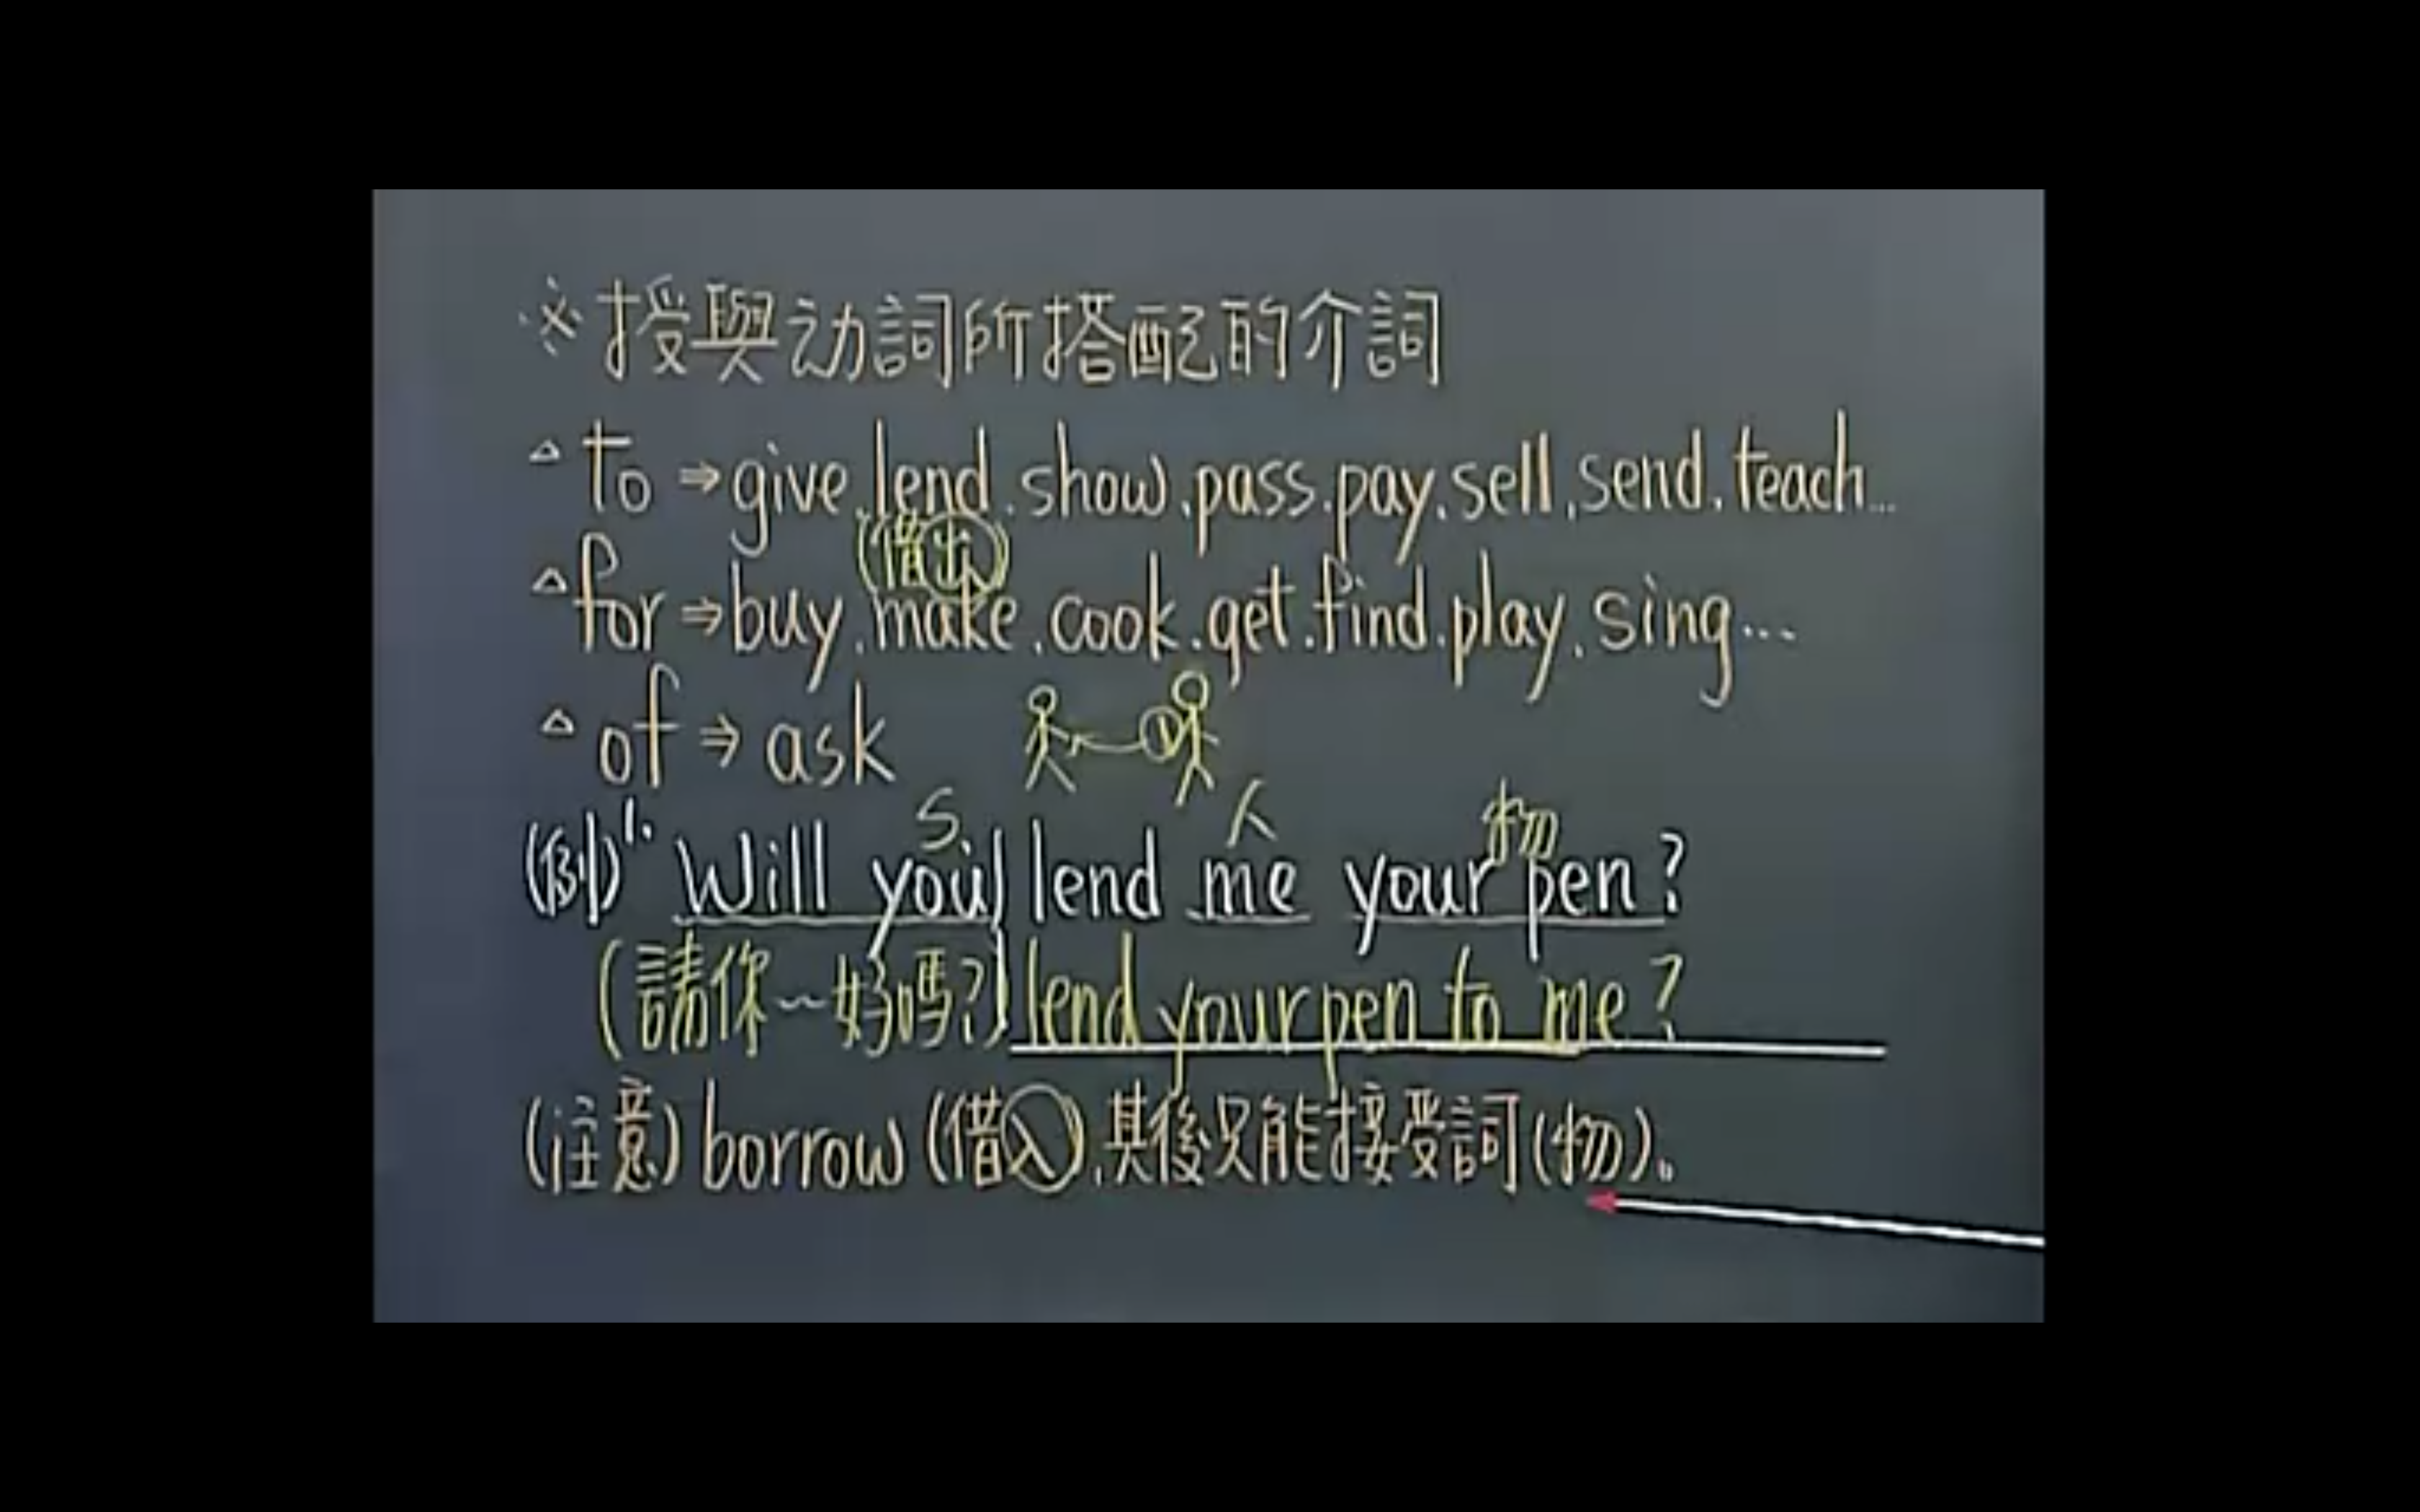 ※授與动詞所搭配的介詞
△to⇒give.lend.show.pass.pay.sell.send.teach...
(借出)
△for⇒buy.make.cook.get.find.play.sing...
△of⇒ask
S 人 物
(例)1. Will you lend me your pen?
(請你~好嗎?) lend your pen to me?
(注意) borrow (借入),其後只能接受詞(物)。